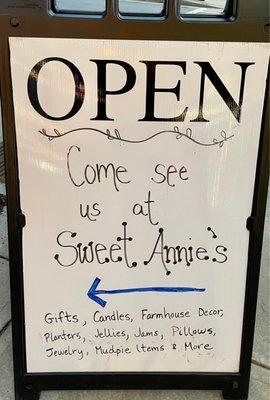 OPEN
Come see
us at
Sweet Annie's
Gifts, Candles, Farmhouse Decor,
Planters, Jellies, Jams, Pillows,
Jewelry, Mudpie Items & More